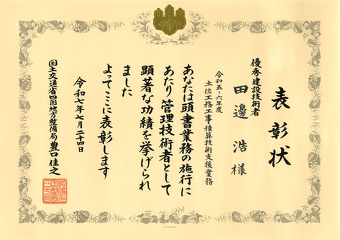 表彰状
優秀建設技術者
田邊 浩 様
令和五~六年度
土佐国道工事積算技術支援業務
あなたは頭書業務の施行に
あたり管理技術者として
顕著な功績を挙げられ
ました
よってここに表彰します
令和七年七月二十四日
国土交通省四国地方整備局長 豊口佳之